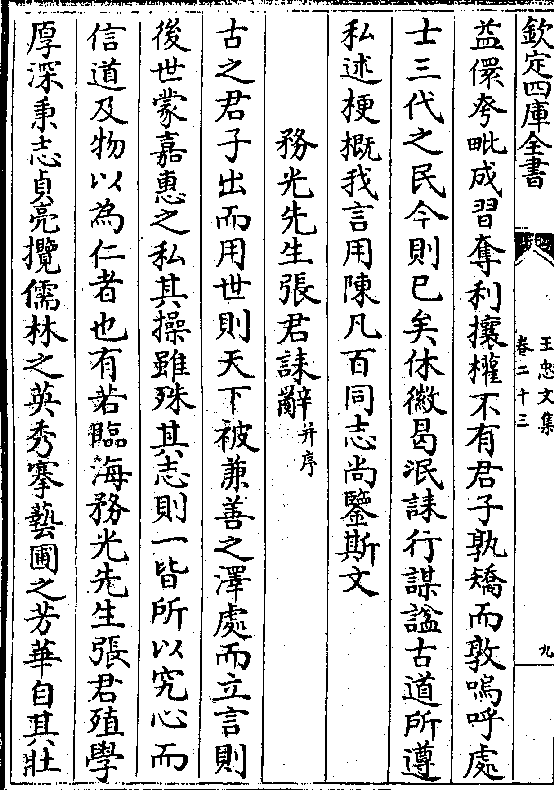 欽定四庫全書
王忠文集
卷二十三
九
益儇夸毗成習奪利攘權不有君子孰矯而敦嗚呼處
士三代之民今則已矣休徽曷泯誄行謀諡古道所遵
私述梗概我言用陳凡百同志尚鑒斯文
務光先生張君誄辭并序
古之君子出而用世則天下被兼善之澤處而立言則
後世蒙嘉惠之私其操雖殊其志則一皆所以究心而
信道及物以為仁者也有若臨海務光先生張君殖學
厚深秉志貞亮攬儒林之英秀搴藝圃之芳華自其壯